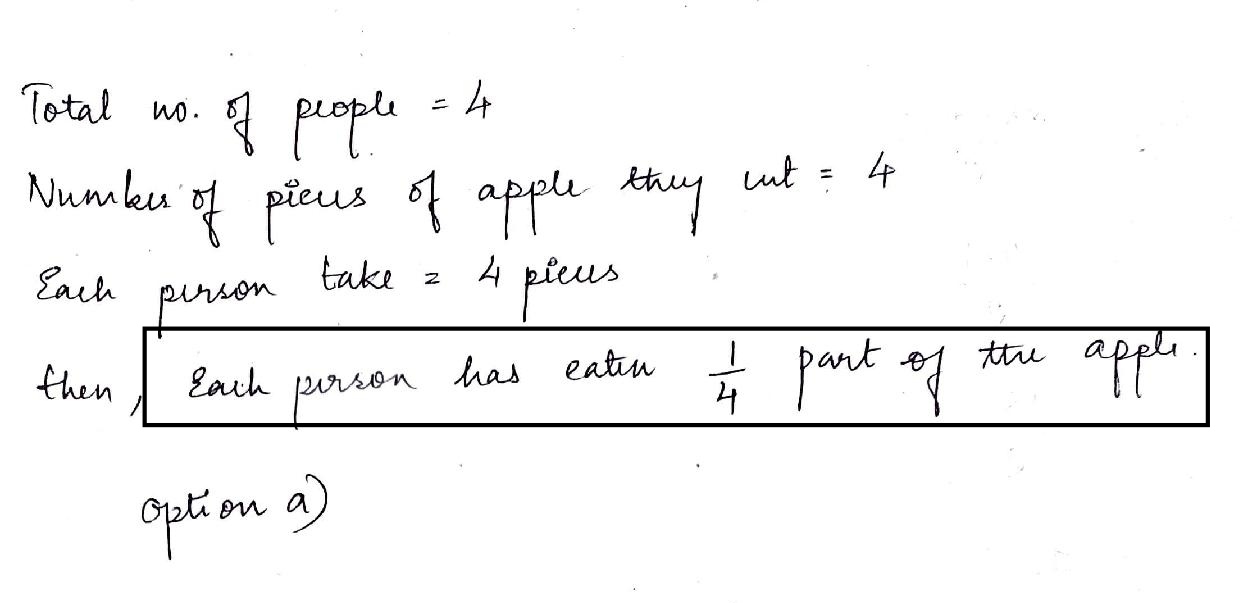 Total no. of people = 4
Number of pieces of apple they cut = 4
Each person take = 4 pieces
then, Each person has eaten 1/4 part of the apple.
option a)